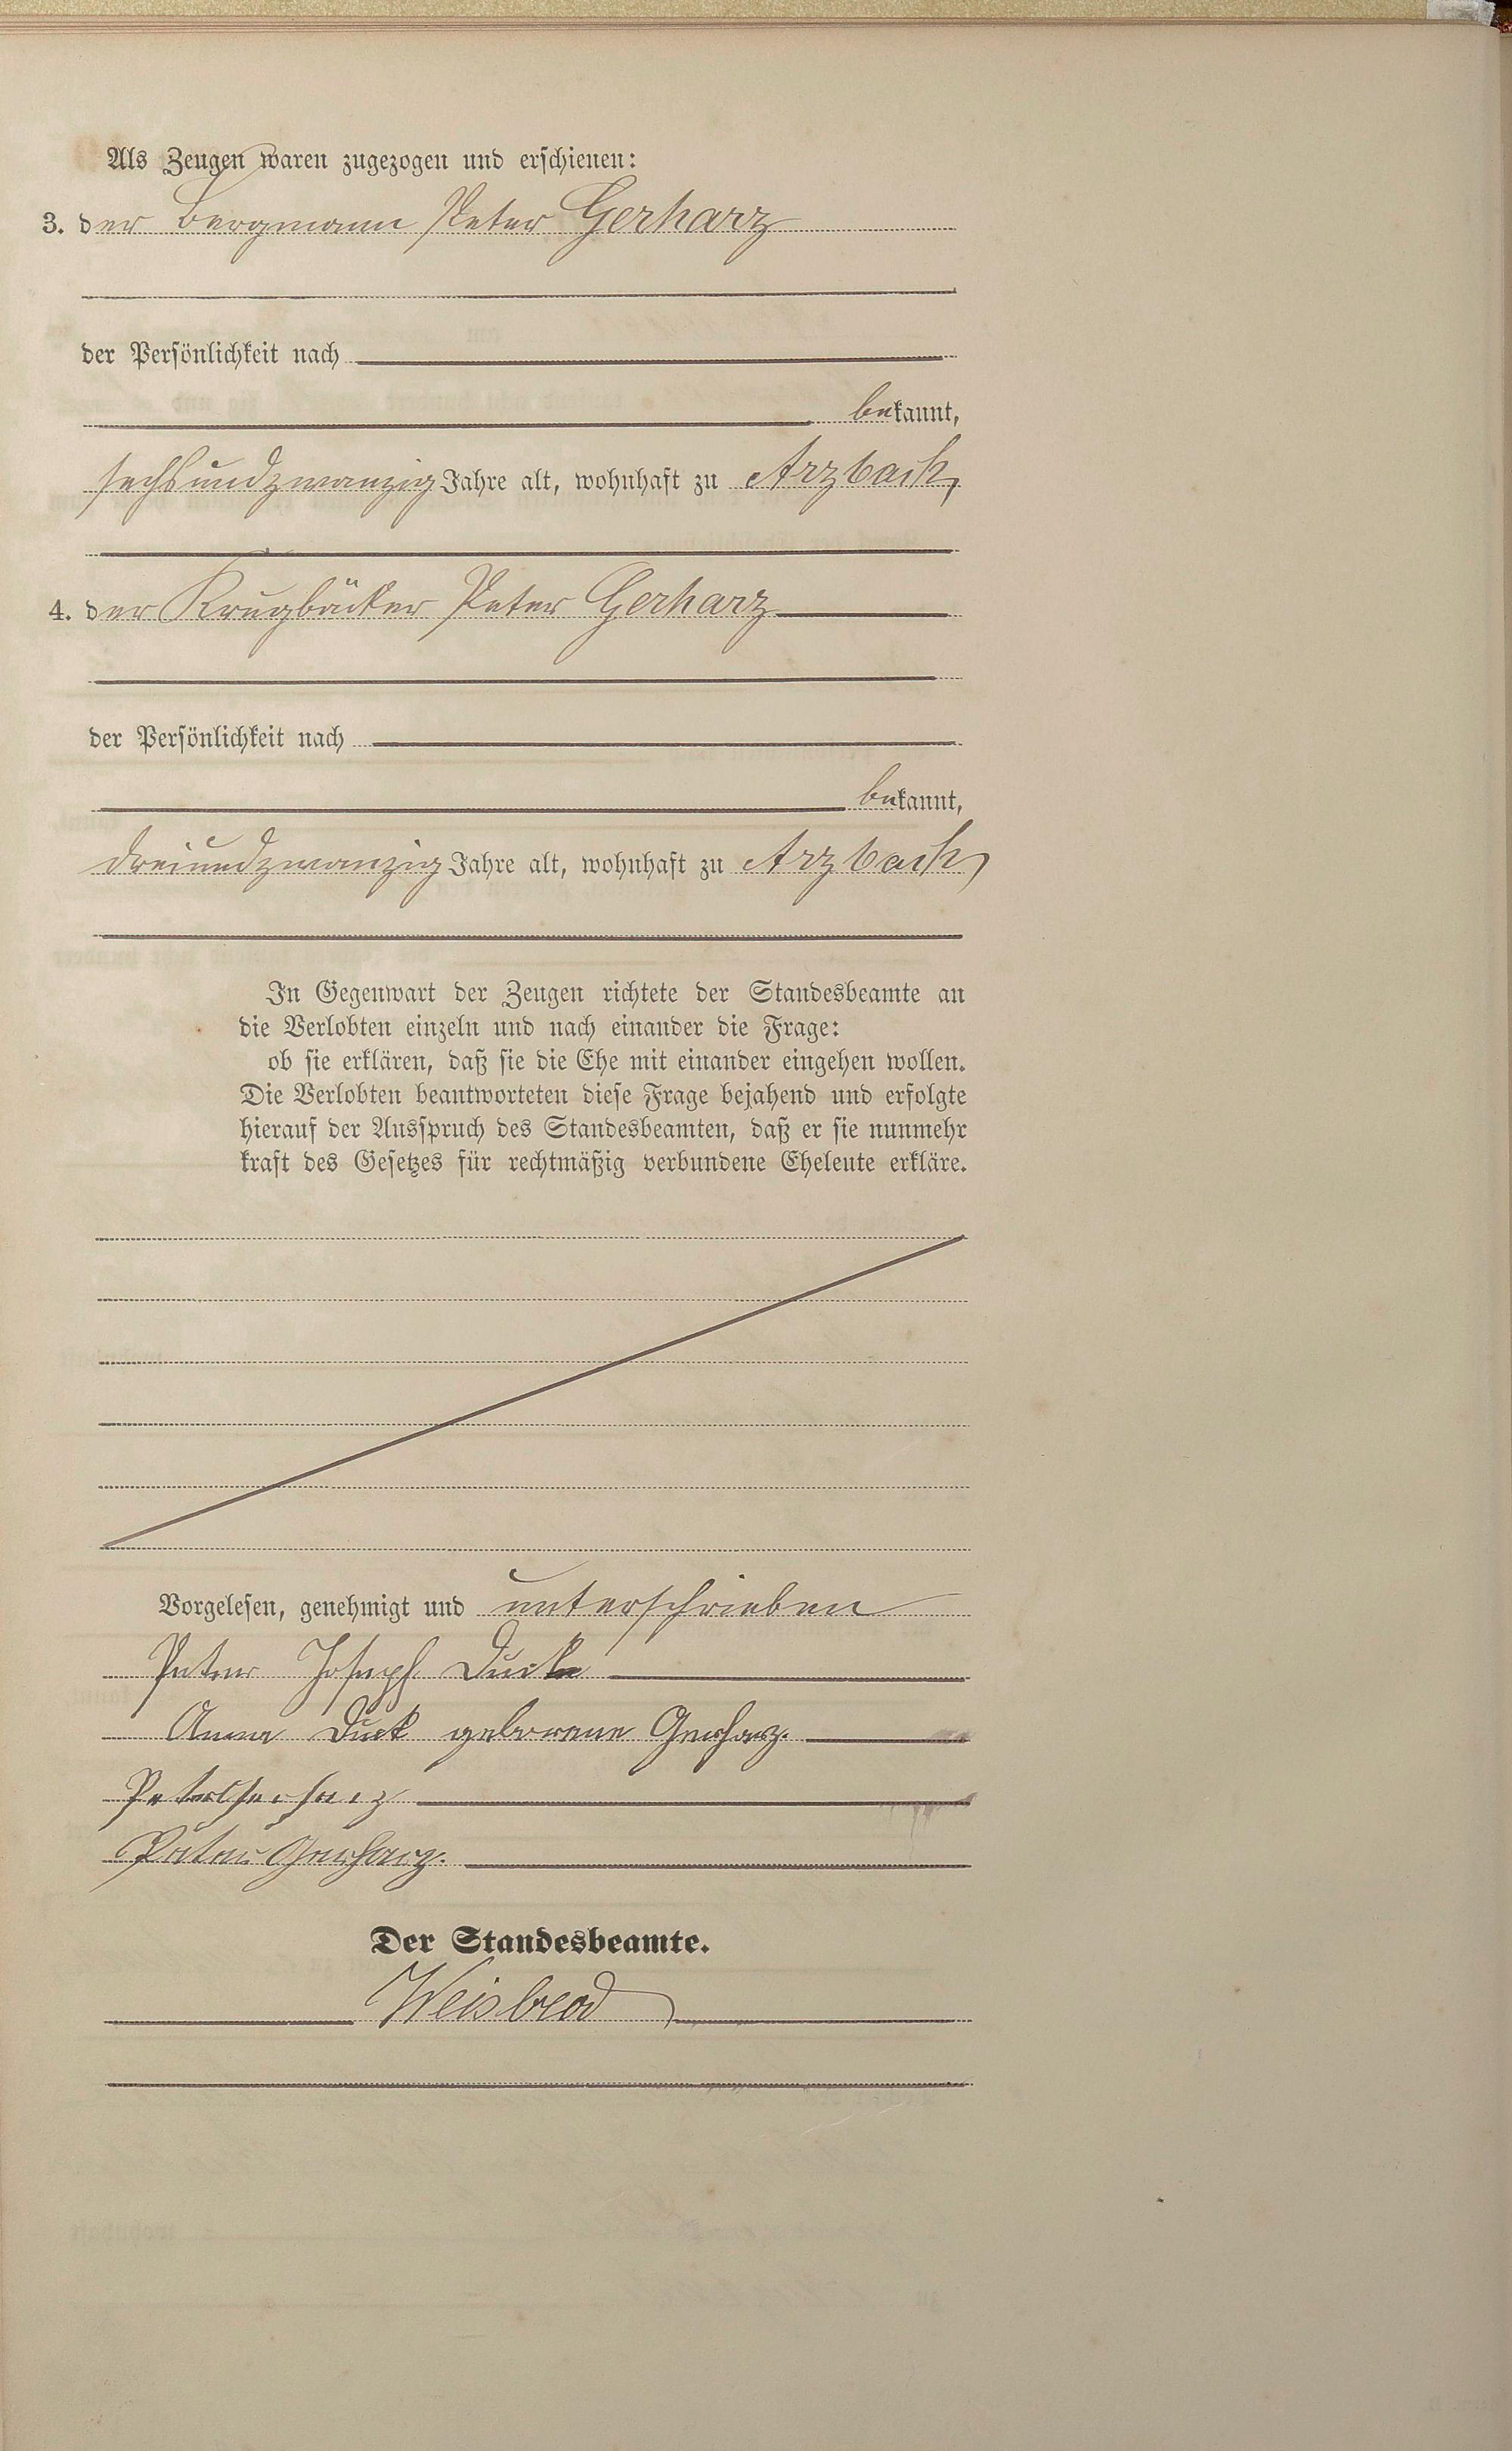 Als Zeugen waren zugezogen und erschienen:
3. der Bergmann Peter Gerharz
der Persönlichkeit nach
bekannt,
sechsundzwanzig Jahre alt, wohnhaft zu Arzbach,
4. der Krugbäcker Peter Gerharz
der Persönlichkeit nach
bekannt,
dreiundzwanzig Jahre alt, wohnhaft zu Arzbach,
In Gegenwart der Zeugen richtete der Standesbeamte an
die Verlobten einzeln und nach einander die Frage:
ob sie erklären, daß sie die Ehe mit einander eingehen wollen.
Die Verlobten beantworteten diese Frage bejahend und erfolgte
hierauf der Ausspruch des Standesbeamten, daß er sie nunmehr
kraft des Gesetzes für rechtmäßig verbundene Eheleute erkläre.
Vorgelesen, genehmigt und unterschrieben
Peter Joseph
Anna Duck geborene Gerharz.
Peter Gerharz
Peter Gerharz.
Der Standesbeamte.
Weisbrod